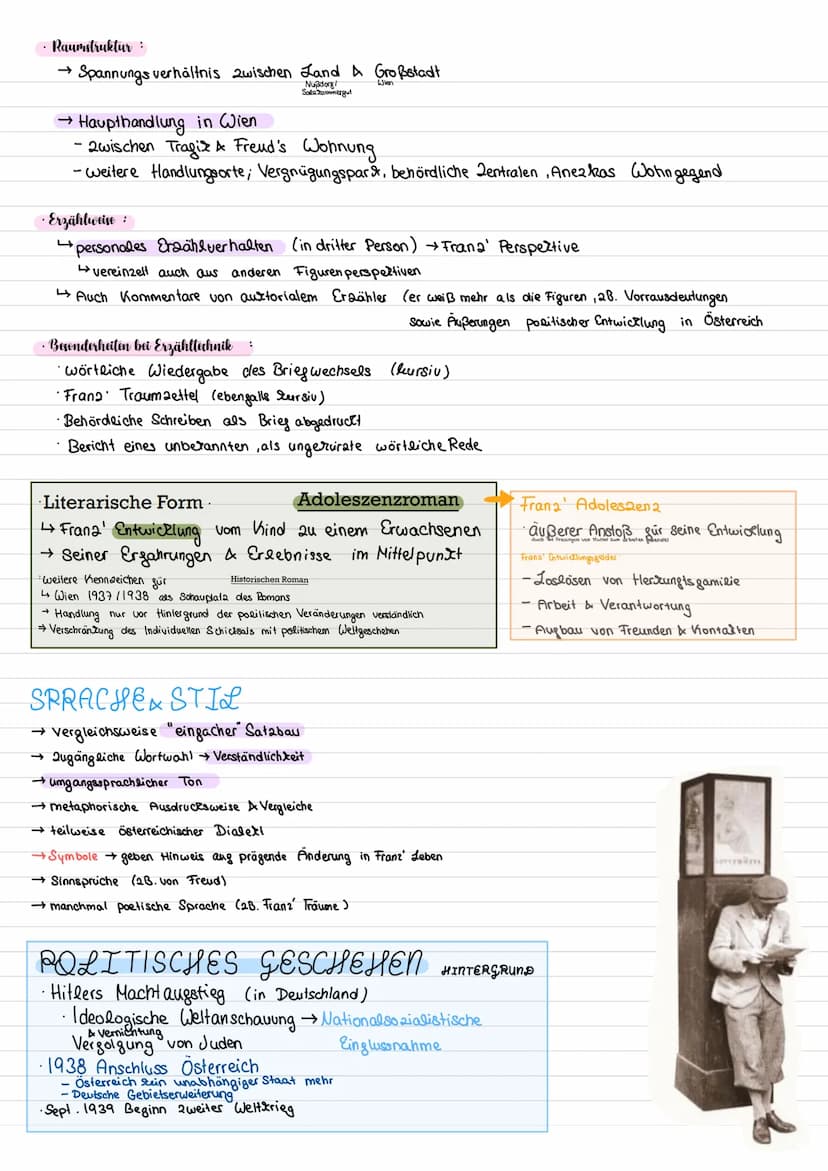 · Raumstruktur :
→ Spannungsverhältnis zwischen Land & Großstadt
Nußdorf/ Wien
Salzkammergut
→ Haupthandlung in Wien
- zwischen Trafik & Freud's Wohnung
- weitere Handlungsorte; Vergnügungspark, behördliche Zentralen, Anezkas Wohngegend
· Erzählweise :
↳ personales Erzählverhalten (in dritter Person) → Franz' Perspektive
↳ vereinzelt auch aus anderen Figurenperspektiven
↳ Auch Kommentare von auktorialem Erzähler (er weiß mehr als die Figuren, zB. Vorrausdeutungen
sowie Äußerungen politischer Entwicklung in Österreich
· Besonderheiten bei Erzähltechnik :
· wörtliche Wiedergabe des Briefwechsels (kursiv)
· Franz' Traumzettel (ebenfalls kursiv)
· Behördliche Schreiben als Brief abgedruckt
· Bericht eines unbekannten, als ungekürzte wörtliche Rede
· Literarische Form · Adoleszenzroman
↳ Franz' Entwicklung vom Kind zu einem Erwachsenen
→ Seiner Erfahrungen & Erlebnisse im Mittelpunkt
· weitere Kennzeichen für Historischen Roman
↳ Wien 1937/1938 als Schauplatz des Romans
→ Handlung nur vor Hintergrund der politischen Veränderungen verständlich
⇒ Verschränkung des Individuellen Schicksals mit politischem Weltgeschehen
Franz' Adoleszenz
· äußerer Anstoß für seine Entwicklung
Franz' Entwicklungsfelder
- Loslösen von Herkunftsfamilie
- Arbeit & Verantwortung
- Aufbau von Freunden & Kontakten
SPRACHE & STIL
→ vergleichsweise "einfacher" Satzbau
→ zugängliche Wortwahl → Verständlichkeit
→ umgangssprachlicher Ton
→ metaphorische Ausdrucksweise & Vergleiche
→ teilweise österreichischer Dialekt
→ Symbole → geben Hinweis auf prägende Änderung in Franz' Leben
→ Sinnsprüche (zB. von Freud)
→ manchmal poetische Sprache (zB. Franz' Träume)
POLITISCHES GESCHEHEN HINTERGRUND
· Hitlers Machtaufstieg (in Deutschland)
· Ideologische Weltanschauung → Nationalsozialistische
& Vernichtung
Verfolgung von Juden Einflussnahme
· 1938 Anschluss Österreich
- Österreich kein unabhängiger Staat mehr
- Deutsche Gebietserweiterung
· Sept. 1939 Beginn zweiter Weltkrieg